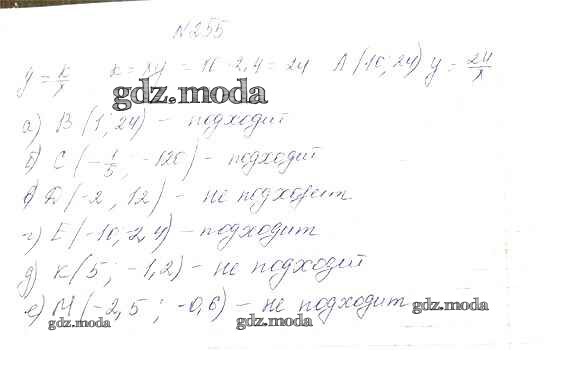 №255
y = k/x   k = xy = 10 · 2,4 = 24   A (10; 24) y = 24/x
gdz.moda
а) B (1; 24) – подходит
б) C (-1/5; -120) – подходит
в) D (-2; 12) – не подходит
г) E (-10; 2,4) – подходит
д) K (5; -1,2) – не подходит
е) M (-2,5; -0,6) – не подходит
gdz.moda gdz.moda gdz.moda